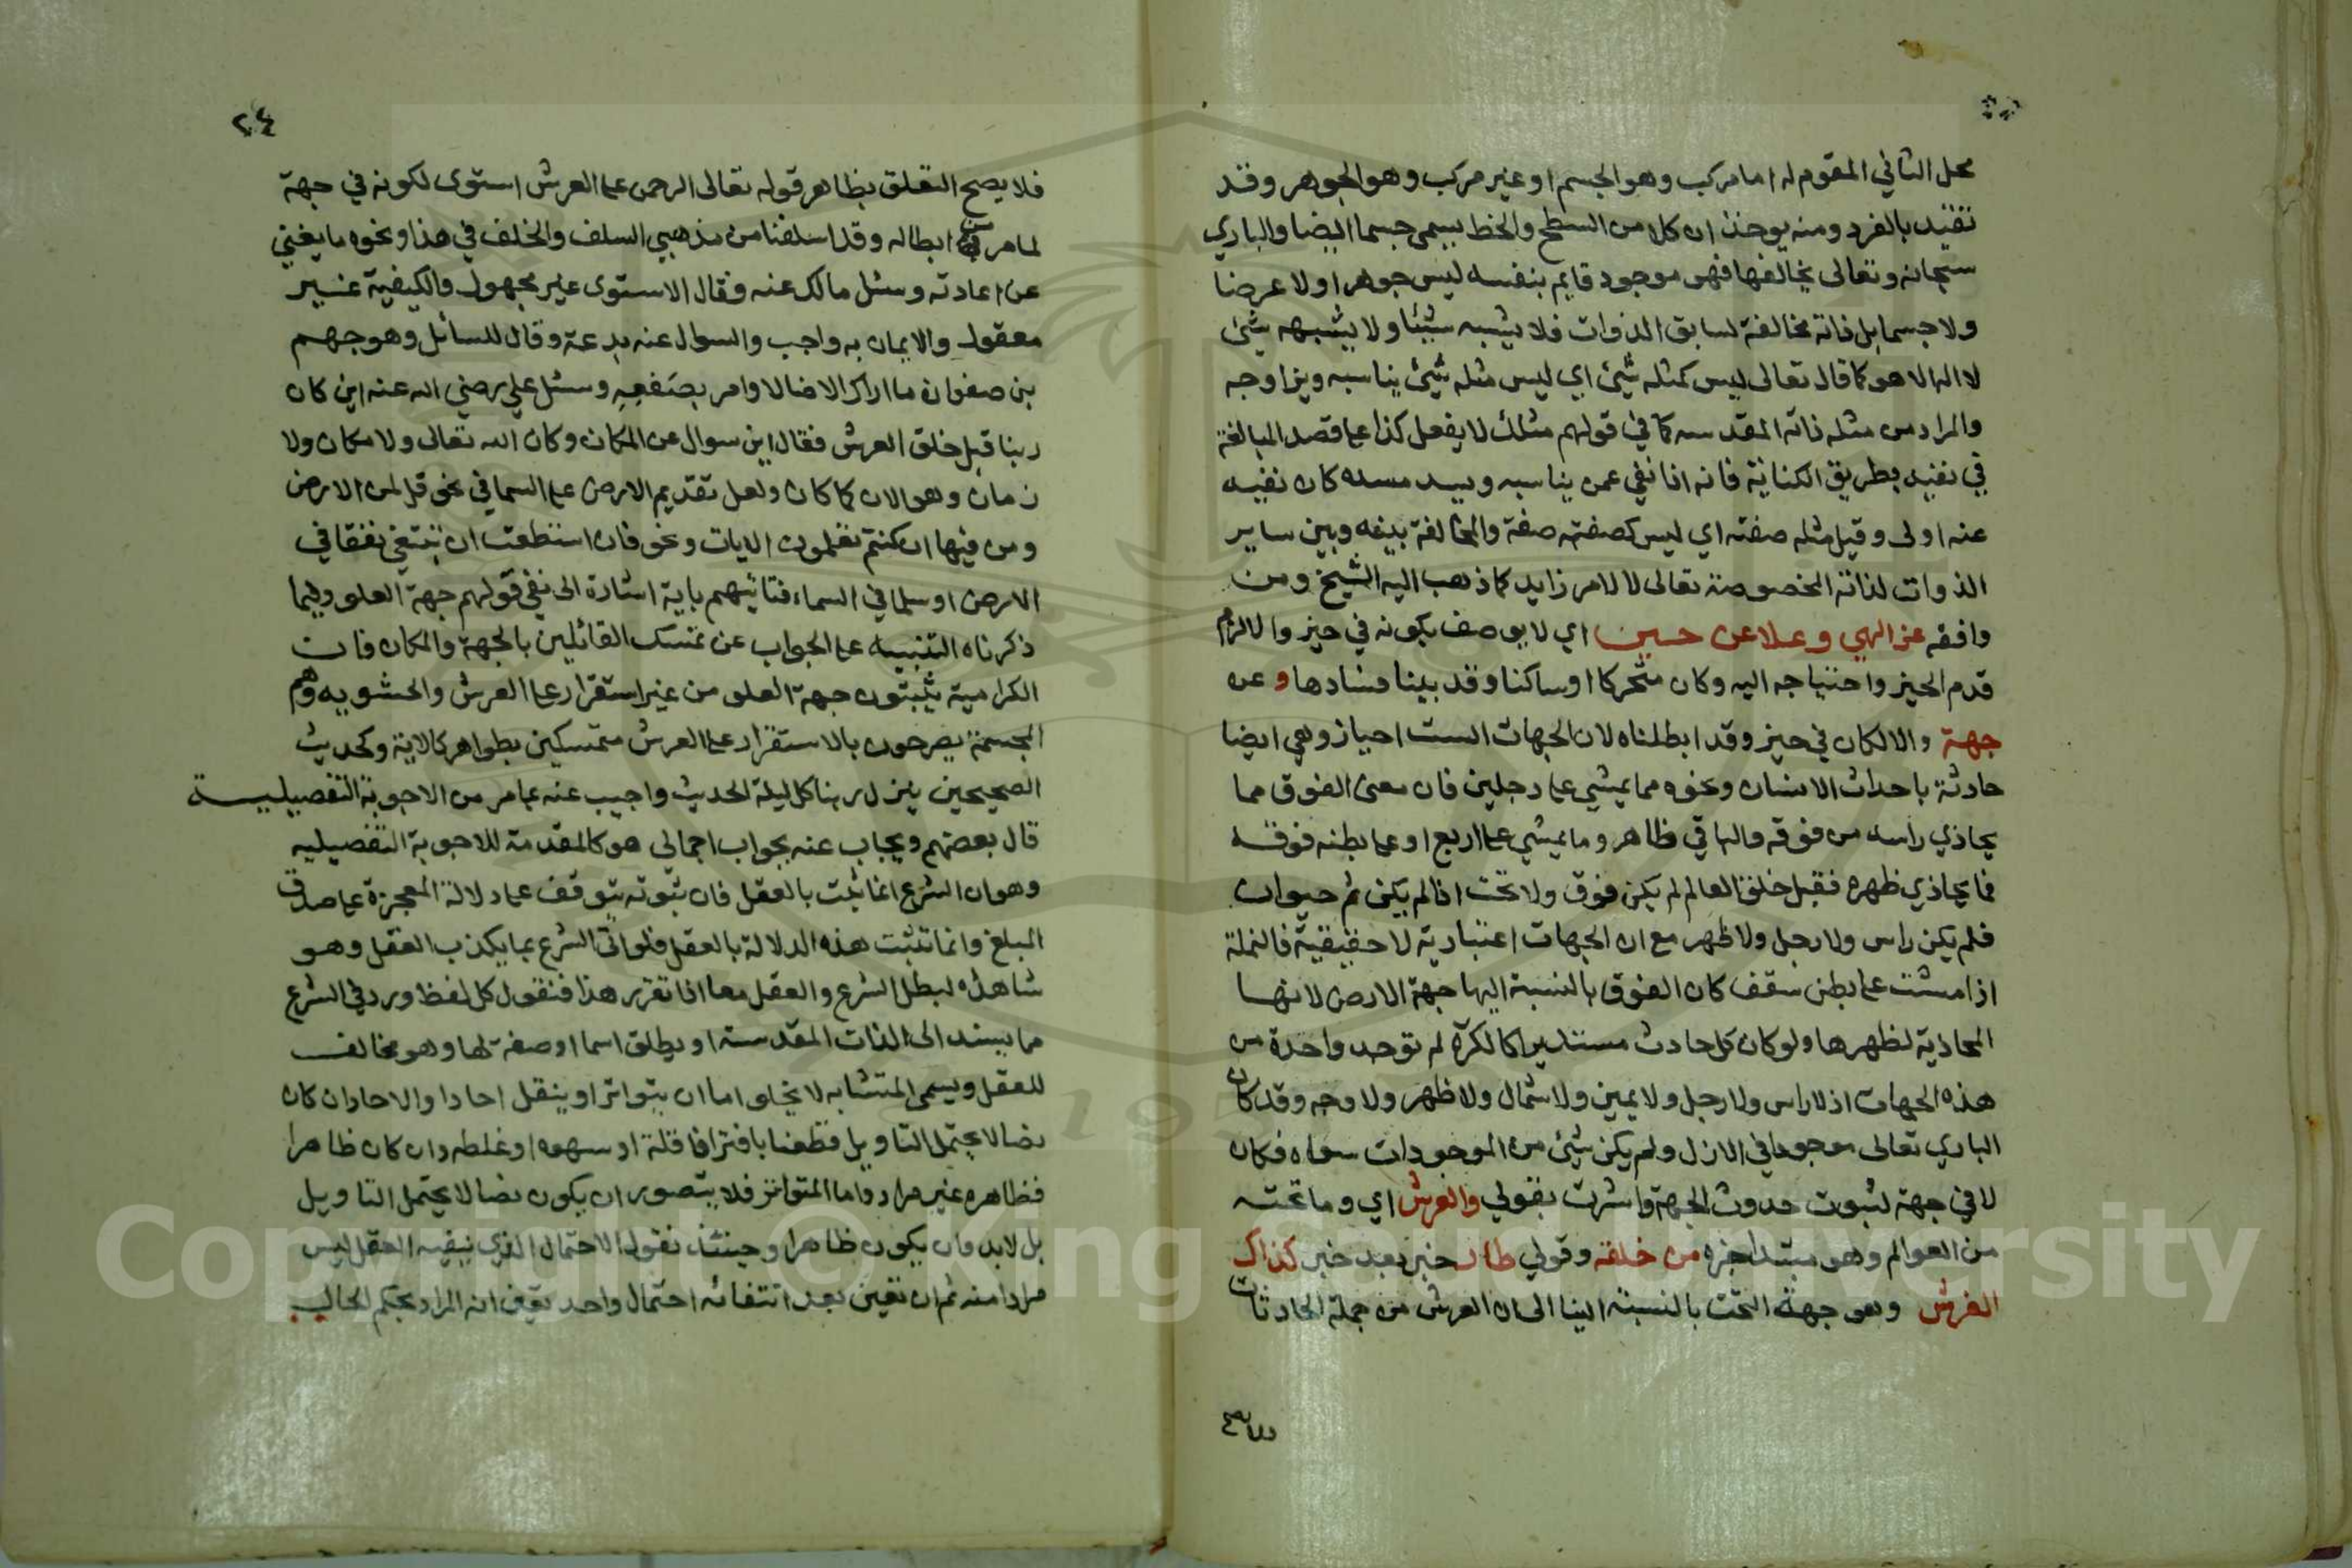 محل الثاني المقوم له اما مركب وهو الجسم او غير مركب وهو الجوهر وقد
تقيد بالفرد ومنه يوخذ ان كلا من السطح والخط يسمى جسما ايضا والباري
سبحانه وتعالى يخالفها فهو موجود قايم بنفسه ليس جوهرا ولا عرضا
ولا جسما بل ذاته مخالفة لسايق الذوات فلا يشبه شيئا ولا يشبهه شيئ
لا اله الا هو كما قال تعالى ليس كمثله شيئ اي ليس مثله شيئ يناسبه ويزاوجه
والمراد من مثله ذاته المقدسه كما في قولهم مثلك لا يفعل كذا على قصد المبالغة
في نفيه بطريق الكناية فانه اذا نفي عمن يناسبه ويسد مسده كان نفيه
عنه اولى وقيل مثله صفته اي ليس كصفته صفة والمخالفة بينه وبين ساير
الذوات لذاته المخصوصة تعالى لا لامر زايد كما ذهب اليه الشيخ ومن
وافقه عز الهي وعلا عن حين اي لا يوصف بكونه في حيز والا لازم
قدم الحيز واحتياجه اليه وكان متحركا او ساكنا وقد بينا فسادها وعن
جهة والا لكان في حيز وقد ابطلناه لان الجهات الست احياز وهي ايضا
حادثة باحداث الانسان ونحوه مما يمشي على رجلين فان معنى الفوق مما
يحاذي راسه من فوقه والباقي ظاهر وما يمشي على اربع او على بطنه فوقه
فما يحاذي ظهره فقبل خلق العالم لم يكن فوق ولا تحت اذا لم يكن ثم حيوان
فلم يكن راس ولا رجل ولا ظهر مع ان الجهات اعتبارية لا حقيقية فالنملة
اذا مشت على بطن سقف كان الفوق بالنسبة اليها جهة الارض لانها
المحاذية لظهرها ولو كان كل حادث مستديرا كالكرة لم توجد واحدة من
هذه الجهات اذ لا راس ولا رجل ولا يمين ولا شمال ولا ظهر ولا وجه وقد كان
الباري تعالى موجودا في الازل ولم يكن شيئ من الموجودات سواه فكان
لا في جهة لثبوت حدوث الجهة واشرت بقولي والعرش اي وما تحته
من العوالم وهو مبتدا خبره من خلقه وقولي طار خبر بعد خبر كذاك
الفرش وهو جهة التحت بالنسبة الينا الى ان العرش من جملة الحادثات
٢٤
فلا يصح التعلق بظاهر قوله تعالى الرحمن على العرش استوى لكونه في جهة
لما مر من ابطاله وقد اسلفنا من مذهبي السلف والخلف في هذا ونحوه ما يغني
عن اعادته وسئل مالك عنه فقال الاستوى غير مجهول والكيفية غير
معقول والايمان به واجب والسوال عنه بدعة وقال للسائل وهو جهم
بن صفوان ما اراك الا ضالا وامر بصفعه وسئل علي رضي الله عنه اين كان
ربنا قبل خلق العرش فقال اين سوال عن المكان وكان الله تعالى ولا مكان ولا
زمان وهو الان كما كان ولعل تقديم الارض على السما في نحو قل لمن الارض
ومن فيها ان كنتم تعلمون الايات ونحو فان استطعت ان تبتغي نفقا في
الارض او سلما في السماء فتاتيهم باية اشارة الى نفي قولهم جهة العلو وفيما
ذكرناه التنبيه على الجواب عن تمسك القائلين بالجهة والمكان فان
الكرامية يثبتون جهة العلو من غير استقرار على العرش والحشويه وهم
المجسمة يصرحون بالاستقرار على العرش متمسكين بظواهر كالاية وكحديث
الصحيحين ينزل ربنا كل ليلة الحديث واجيب عنه بما مر من الاجوبة التفصيلية
قال بعضهم ويجاب عنه بجواب اجمالي هو كالمقدمة للاجوبة التفصيليه
وهو ان الشرع انما يثبت بالعقل فان ثبوته يتوقف على دلالة المعجزة على صدق
المبلغ وانما تثبت هذه الدلالة بالعقل فلو اتى الشرع بما يكذب العقل وهو
شاهده لبطل الشرع والعقل معا اذا تقرر هذا فنقول كل لفظ ورد في الشرع
مما يسند الى الذات المقدسة او يطلق اسما او صفة لها وهو مخالف
للعقل ويسمى المتشابه لا يخلو اما ان يتواتر او ينقل احادا والاحاد ان كان
نصا لا يحتمل التاويل قطعنا بافترا ناقلة او سهوه او غلطه وان كان ظاهرا
فظاهره غير مراد واما المتواتر فلا يتصور ان يكون نصا لا يحتمل التاويل
بل لابد وان يكون ظاهرا وحينئذ نقول الاحتمال الذي ينفيه العقل ليس
مرادا منه ثم ان تعين بعد انتفائه احتمال واحد تعين انه المراد بحكم الحال
Copyright © King Saud University
1957